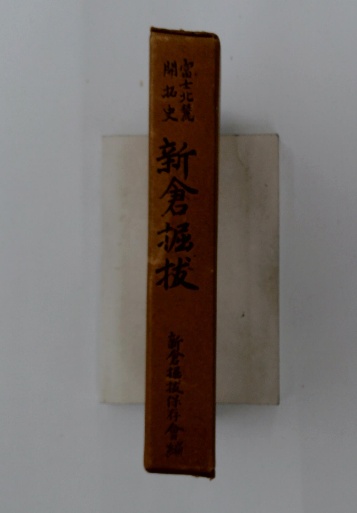 富士北麓
開拓史
新倉掘抜
新倉掘抜保存會編